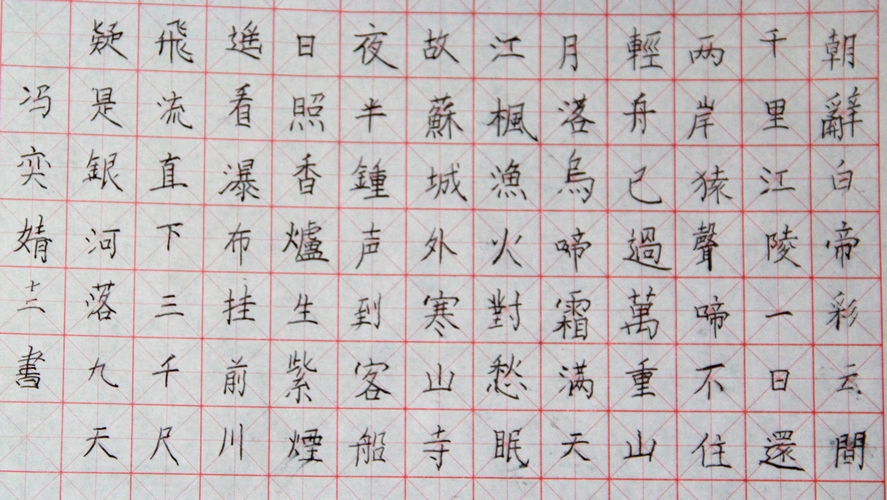 朝辭白帝彩云間
千里江陵一日還
两岸猿聲啼不住
輕舟已過萬重山
月落烏啼霜满天
江楓漁火對愁眠
故蘇城外寒山寺
夜半鍾声到客船
日照香爐生紫煙
遥看瀑布挂前川
飛流直下三千尺
疑是銀河落九天
冯奕婧十二書